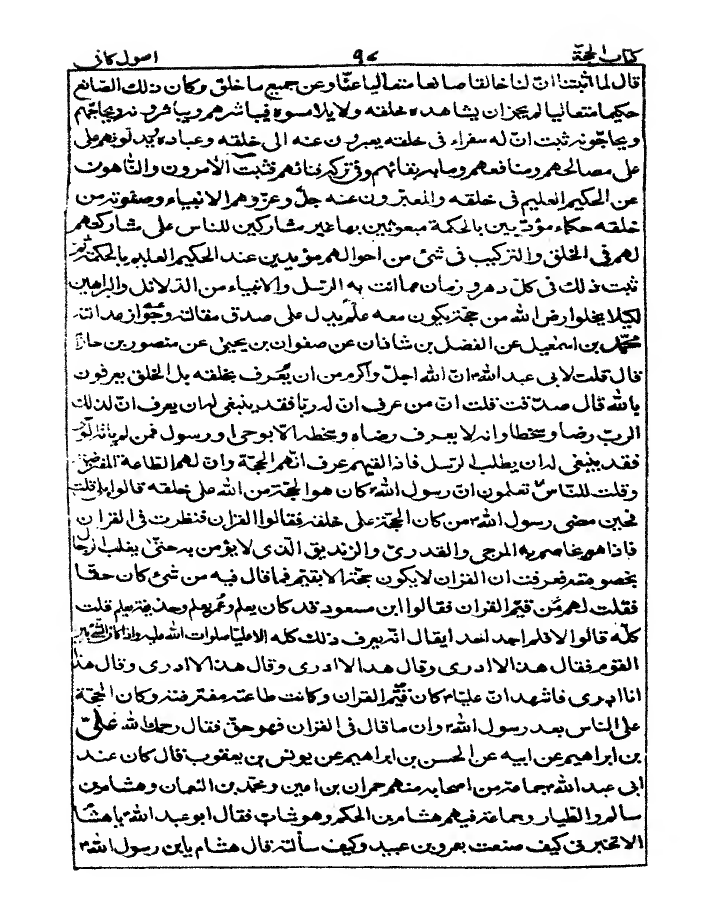 كتاب الحجة ٩٧ اصول كافى
قال لما اثبتنا انّ لنا خالقا صانعا متعاليا عنّا وعن جميع ما خلق وكان ذلك الصّانع
حكيما متعاليا لم يجز ان يشاهده خلقه ولا يلامسوه فيباشرهم ويباشرونه ويحاجّهم
ويحاجّونه ثبت انّ له سفراء فى خلقه يعبرون عنه الى خلقه وعباده ويدلونهم على
على مصالحهم ومنافعهم وما به بقائهم وفى تركه فنائهم فثبت الآمرون والنّاهون
عن الحكيم العليم فى خلقه والمعبرون عنه جلّ وعزّ وهم الانبياء وصفوته من
خلقه حكماء مؤدّبين بالحكمة مبعوثين بها غير مشاركين للناس على مشاركتهم
لهم فى الخلق والتركيب فى شئ من احوالهم مؤيدين عند الحكيم العليم بالحكمة ثم
ثبت ذلك فى كلّ دهر وزمان مما اتت به الرسل والانبياء من الدّلائل والبراهين
لكيلا يخلوا رض الله من حجّة يكون معه علم يدل على صدق مقالته وجواز عدالته
محمّد بن اسمعيل عن الفضل بن شاذان عن صفوان بن يحيى عن منصور بن حازم
قال قلت لابى عبد الله ع انّ الله اجلّ واكرم من ان يُعرف بخلقه بل الخلق يعرفون
بالله قال صدقت قلت انّ من عرف انّ له ربا فقد ينبغى له ان يعرف انّ لذلك
الربّ رضا وسخطا وانه لا يعرف رضاه وسخطه الّا بوحى او رسول فمن لم ياته الوحى
فقد ينبغى له ان يطلب الرسل فاذا لقيهم عرف انّهم الحجّة وانّ لهم الطاعة المفترضة
وقلت للنّاس تعلمون انّ رسول الله ص كان هو الحجّة من الله على خلقه قالوا بلى قلت
فحين مضى رسول الله ص من كان الحجّة على خلقه فقالوا القران فنظرت فى القران
فاذا هو يخاصم به المرجى والقدرى والزنديق الّذى لا يؤمن به حتّى يغلب الرجال
بخصومته فعرفت ان القران لا يكون حجّة الا بقيّم فما قال فيه من شئ كان حقّا
فقلت لهم من قيّم القران فقالوا ابن مسعود قد كان يعلم وعُمر يعلم وحذيفة يعلم قلت
كلّه قالوا لا فلم اجد احد ايقال انّه يعرف ذلك كله الا عليّا صلوات الله عليه واذا كان الشئ بين
القوم فقال هذا لا ادرى وقال هذا لا ادرى وقال هذا لا ادرى وقال هذا
انا ادرى فاشهد انّ عليّا ع كان قيّم القران وكانت طاعته مفترضة وكان الحجّة
على الناس بعد رسول الله ص وان ما قال فى القران فهو حقّ فقال رحمك الله علىّ
بن ابراهيم عن ابيه عن الحسن بن ابراهيم عن يونس بن يعقوب قال كان عند
ابى عبد الله ع جماعة من اصحابه منهم حمران بن اعين ومحمّد بن النّعمان وهشام بن
سالم والطيار وجماعة فيهم هشام بن الحكم وهو شاب فقال ابو عبد الله ع يا هشام
الا تخبرنى كيف صنعت بعمرو بن عبيد وكيف سألته قال هشام يابن رسول الله ص